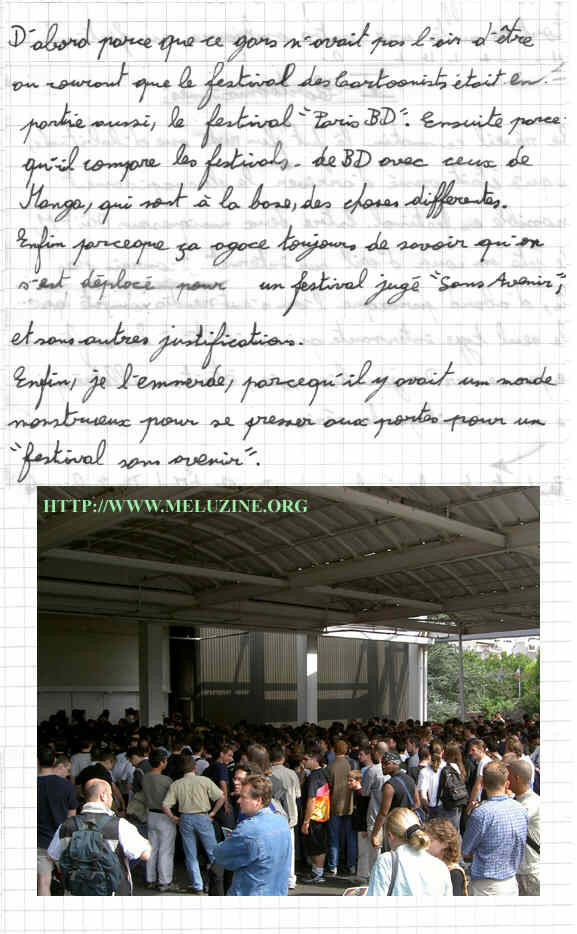 D'abord parce que ce gars n'avait pas l'air d'être
au courant que le festival des Cartoonists était en
partie aussi, le festival "Paris BD". Ensuite parce
qu'il compare les festivals de BD avec ceux de
Manga, qui sont à la base, des choses differentes.
Enfin parceque ça agace toujours de savoir qu'on
s'est déplacé pour un festival jugé "Sans Avenir",
et sans autres justifications.
Enfin, je l'emmerde, parcequ'il y avait un monde
monstrueux pour se presser aux portes pour un
"festival sans avenir".
HTTP://WWW.MELUZINE.ORG